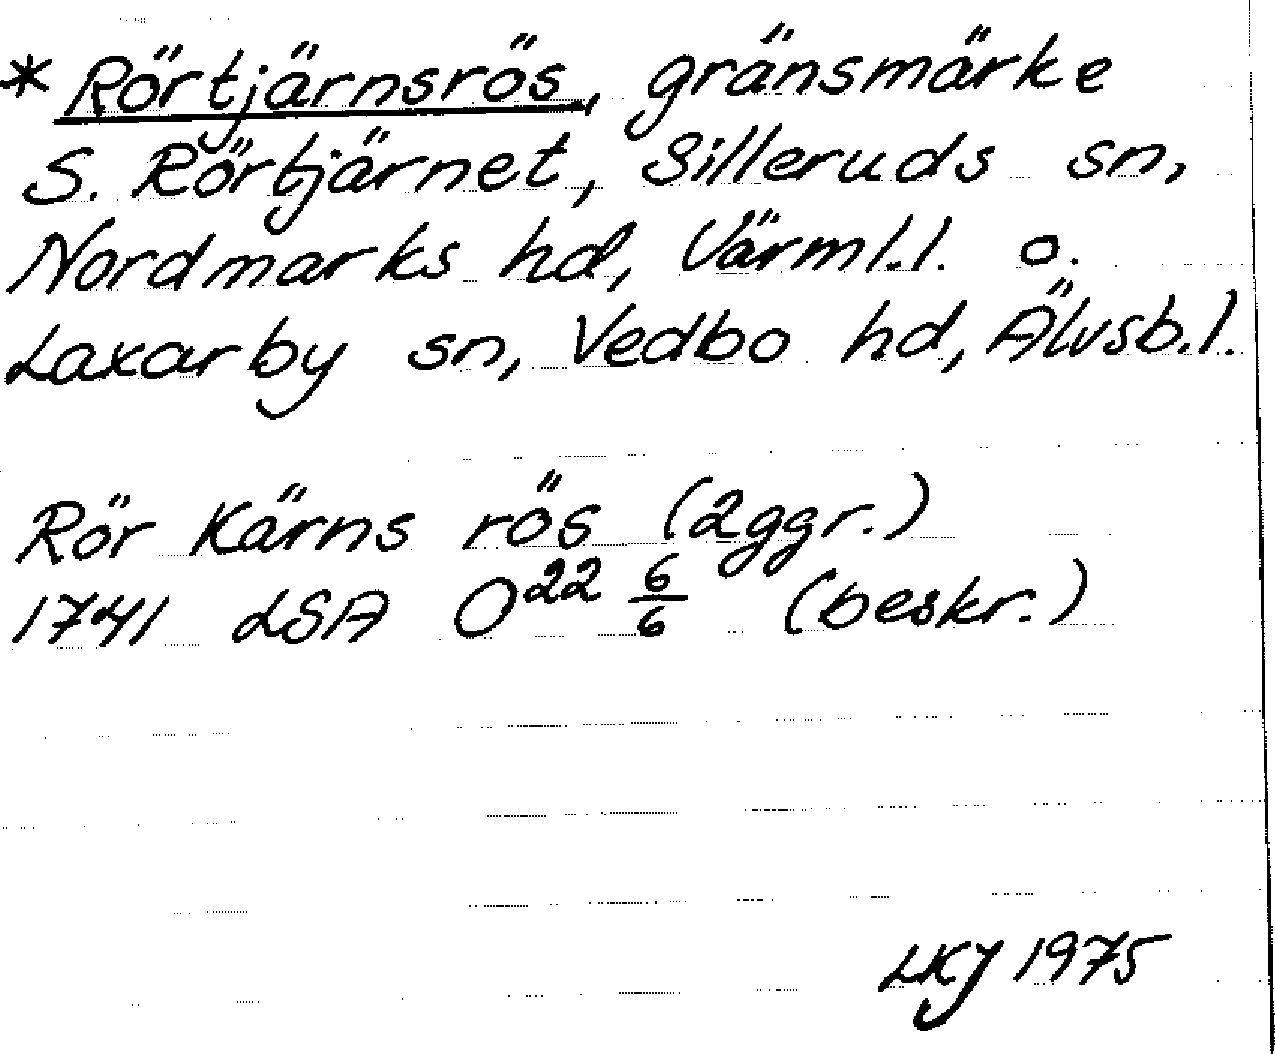 * Rörtjärnsrös, gränsmärke
S. Rörtjärnet, Silleruds sn,
Nordmarks hd, Värml.l. o.
Laxarby sn, Vedbo hd, Älvsb.l.
Rör Kärns rös (2ggr.)
1741 LSA O22 6/6 (beskr.)
LKJ 1975